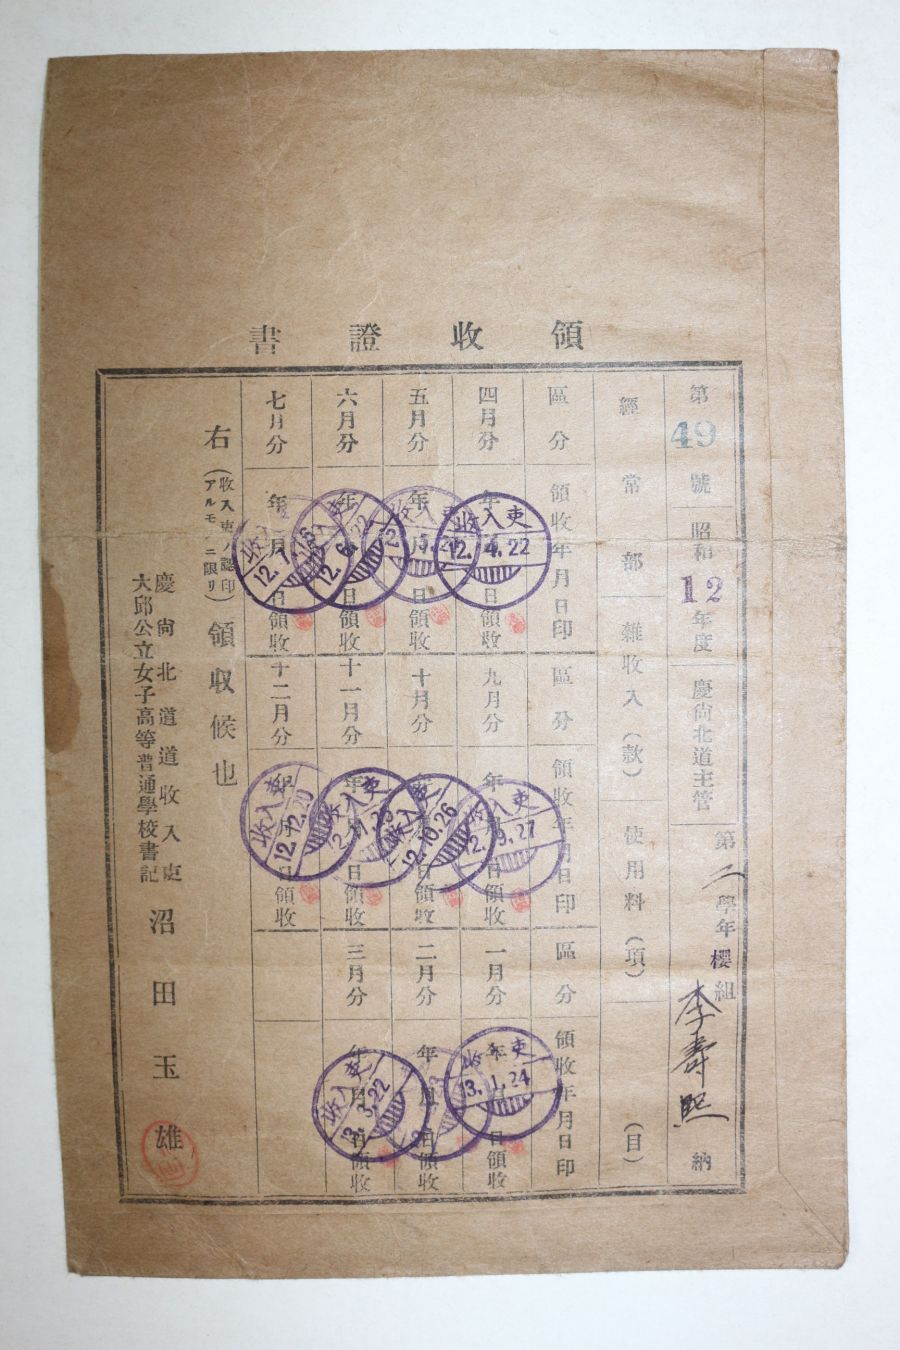 領收證書
第49號 昭和12年度 慶尙北道主管 第二學年櫻組 李壽熙 納
經常部 雜收入(款) 使用料(項) (目)
區分 領收年月日印 區分 領收年月日印 區分 領收年月日印
四月分 年 月 日領收 九月分 年 月 日領收 一月分 年 月 日領收
收入吏 12.4.22
收入吏 12.9.27
收入吏 13.1.24
五月分 年 月 日領收 十月分 年 月 日領收 二月分 年 月 日領收
收入吏
收入吏 12.10.26
六月分 年 月 日領收 十一月分 年 月 日領收 三月分 年 月 日領收
收入吏
收入吏
收入吏 3.22
七月分 年 月 日領收 十二月分 年 月 日領收
收入吏 12.7
收入吏 12.12.20
右(收入吏ノ認印アルモノニ限リ)領収候也
慶尙北道道收入吏
大邱公立女子高等普通學校書記
沼田玉雄